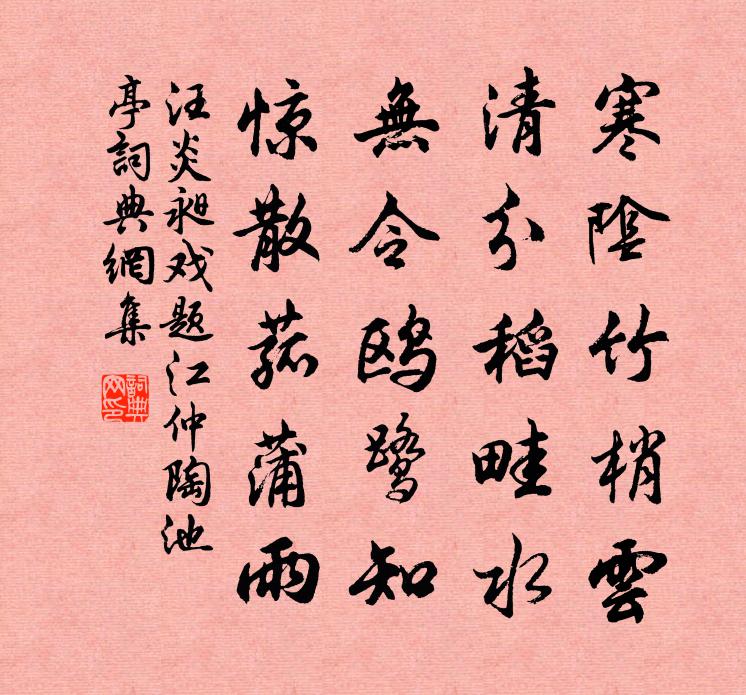 寒陰竹梢雲
清分稻畦水
無令鸥鹭知
惊散菰蒲雨
汪炎昶戏题江仲陶池
亭詞典網集
詞典网印